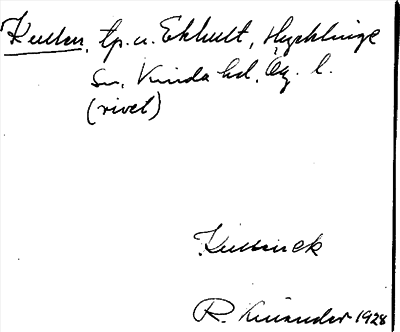 Kullen, tp. u. Ekhult, Hycklinge
sn, Kinda hd, Ög. l.
(rivet)
Kullen ck
R. Kinander 1928